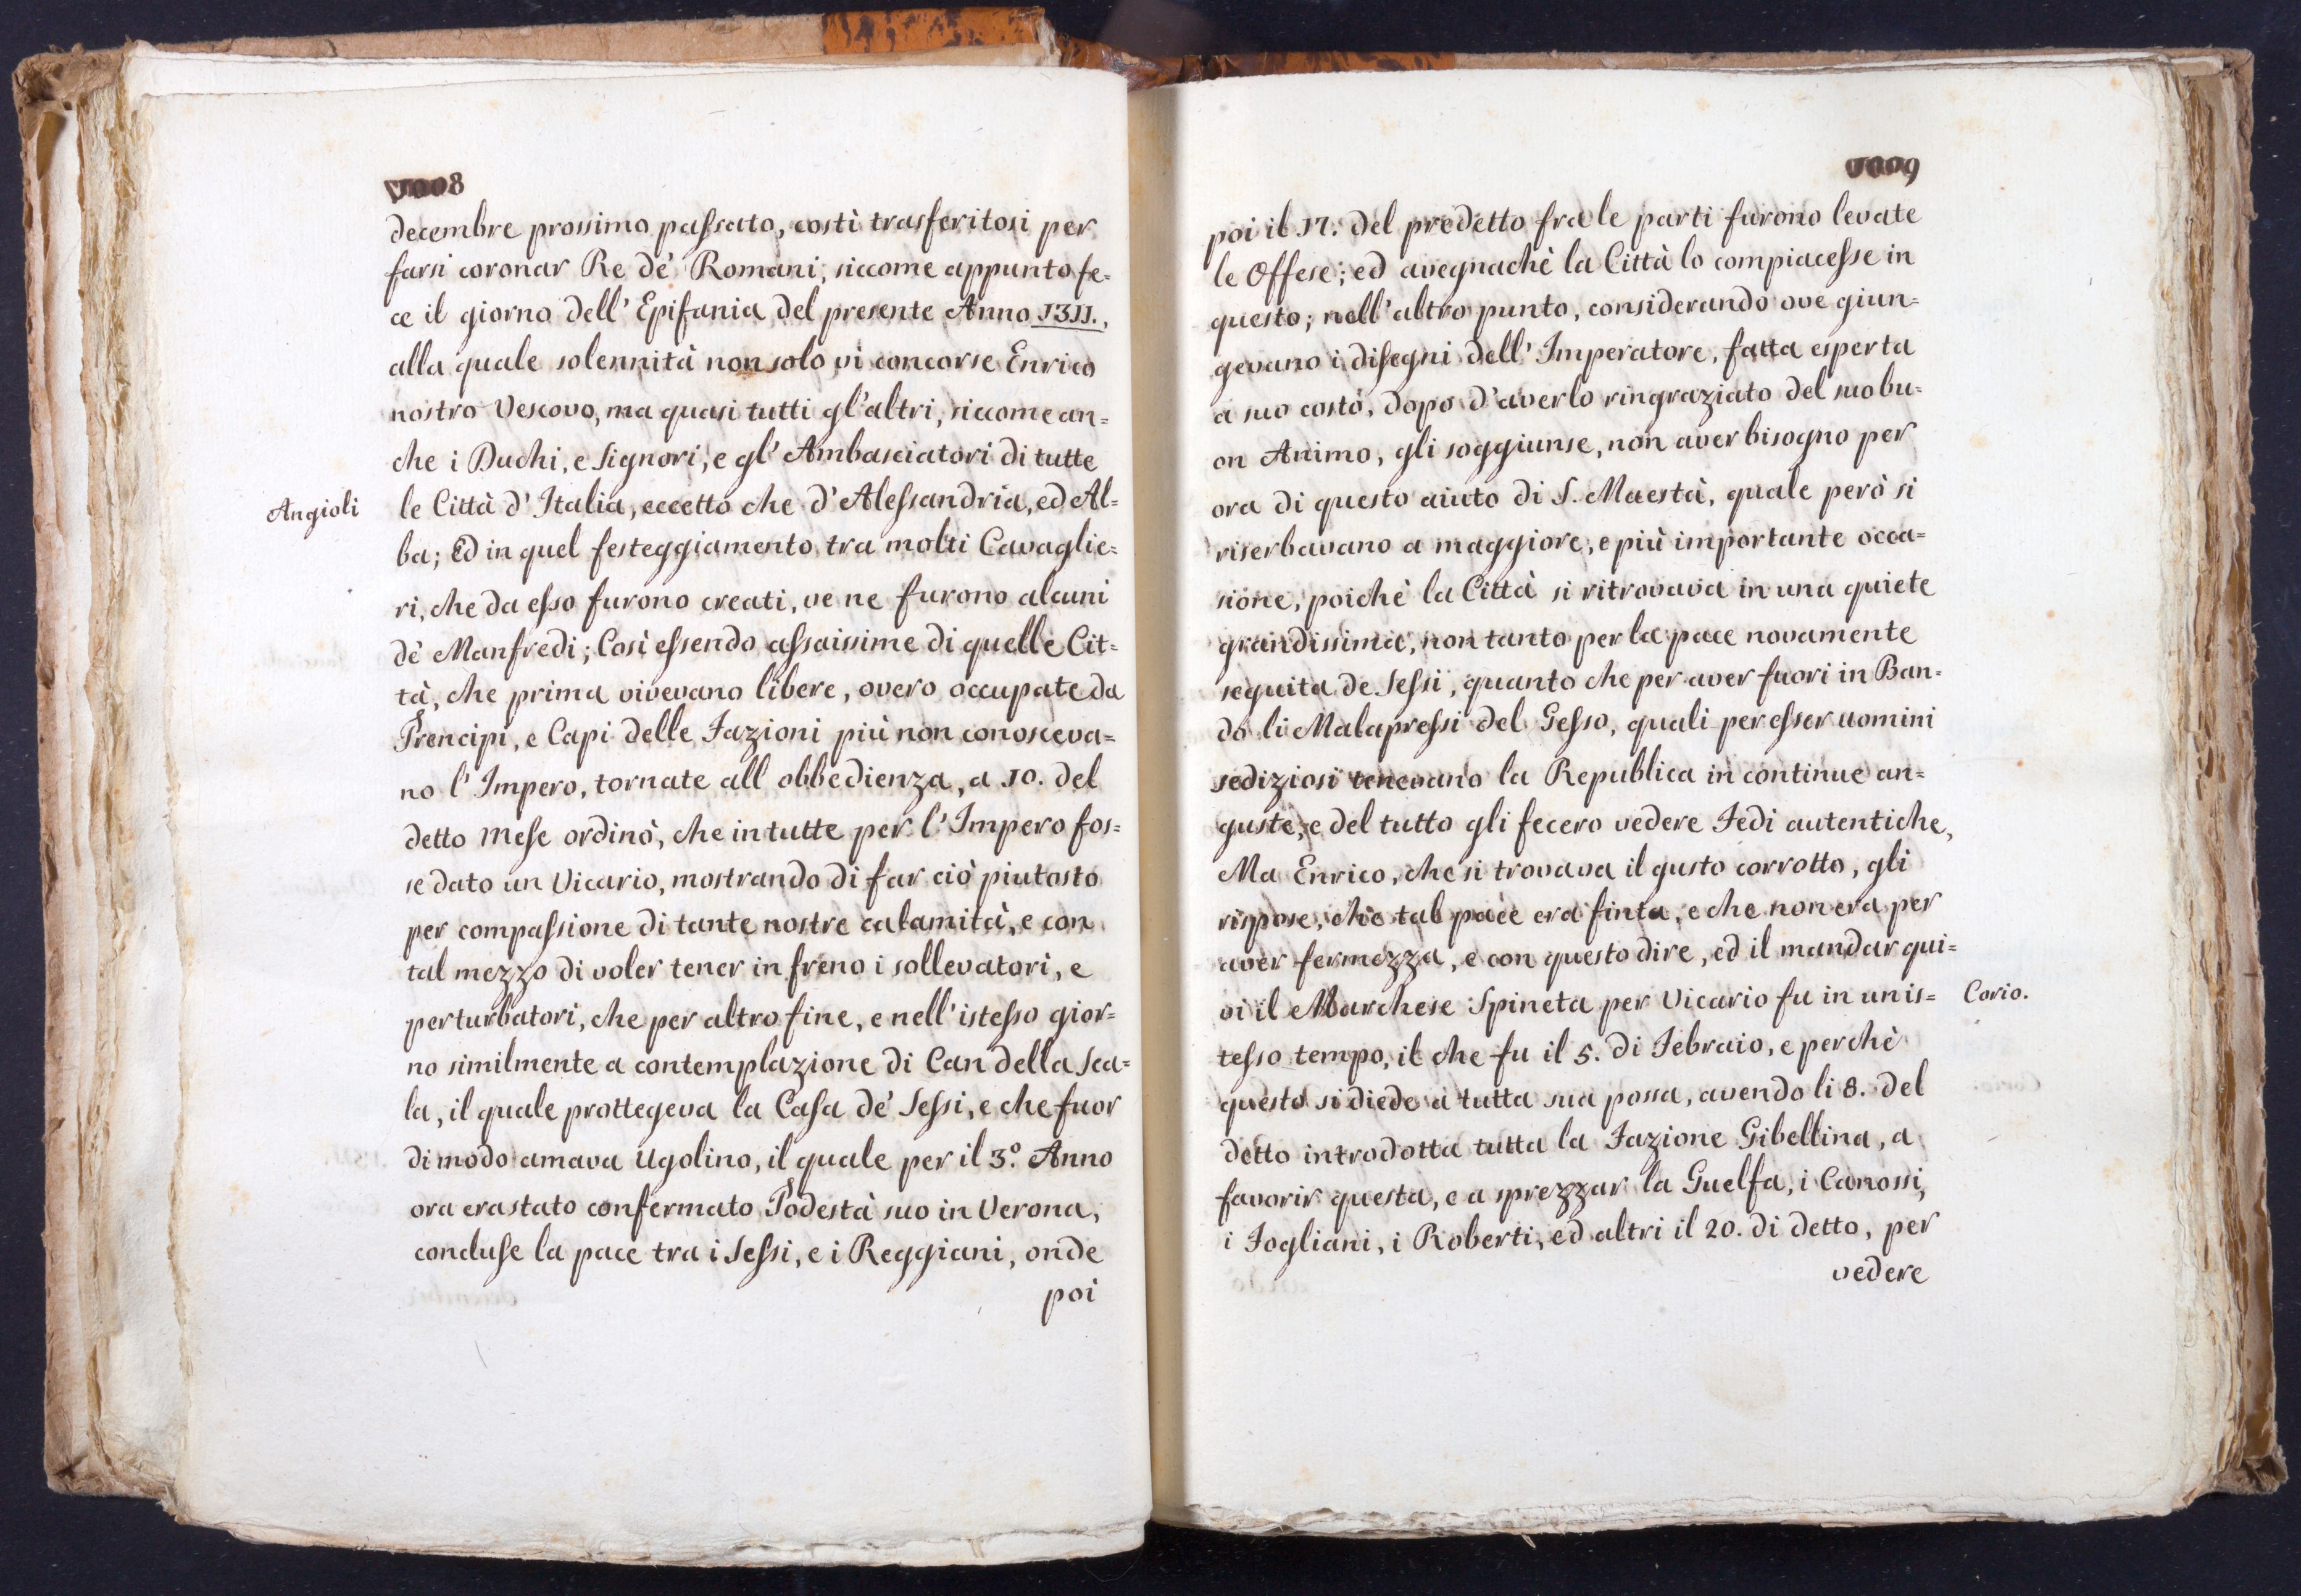 decembre prossimo passato, costì trasferitosi per
farsi coronar Re de' Romani, siccome appunto fe=
ce il giorno dell' Epifania del presente Anno 1311.,
alla quale solennità non solo vi concorse Enrico
nostro Vescovo, ma quasi tutti gl'altri, siccome an=
che i Duchi, e Signori, e gl' Ambasciatori di tutte
Angioli
le Città d' Italia, eccetto che d' Alessandria, ed Al=
ba; Ed in quel festeggiamento tra molti Cavaglie=
ri, che da esso furono creati, ve ne furono alcuni
de' Manfredi; Così essendo assaissime di quelle Cit=
tà, che prima vivevano libere, overo occupate da
Prencipi, e Capi delle Fazioni più non conosceva=
no l' Impero, tornate all obbedienza, a 10. del
detto Mese ordinò, che in tutte per l' Impero fos=
se dato un Vicario, mostrando di far ciò piutosto
per compassione di tante nostre calamità, e con
tal mezzo di voler tener in freno i sollevatori, e
perturbatori, che per altro fine, e nell' istesso gior=
no similmente a contemplazione di Can della Sca=
la, il quale prottegeva la Casa de' Sessi, e che fuor
di modo amava Ugolino, il quale per il 3.º Anno
ora era stato confermato Podestà suo in Verona,
concluse la pace tra i Sessi, e i Reggiani, onde
poi
poi il 17. del predetto fra le parti furono levate
le Offese; ed avegnachè la Città lo compiacesse in
questo; nell' altro punto, considerando ove giun=
gevano i disegni dell' Imperatore, fatta esperta
a suo costo, dopo d'averlo ringraziato del suo bu=
on Animo, gli soggiunse, non aver bisogno per
ora di questo aiuto di S. Maestà, quale però si
riserbavano a maggiore, e più importante occa=
sione, poichè la Città si ritrovava in una quiete
grandissima, non tanto per la pace novamente
seguita de Sessi, quanto che per aver fuori in Ban=
do li Malapressi del Gesso, quali per esser uomini
sediziosi tenevano la Republica in continue an=
guste, e del tutto gli fecero vedere Fedi autentiche,
Ma Enrico, che si trovava il gusto corrotto, gli
rispose, che tal pace era finta, e che non era per
aver fermezza, e con questo dire, ed il mandar qui=
vi il Marchese Spineta per Vicario fu in un is=
Corio.
tesso tempo, il che fu il 5. di Febraio, e perchè
questo si diede a tutta sua possa, avendo li 8. del
detto introdotta tutta la Fazione Gibellina, a
favorir questa, e a sprezzar la Guelfa, i Canossi,
i Fogliani, i Roberti, ed altri il 20. di detto, per
vedere